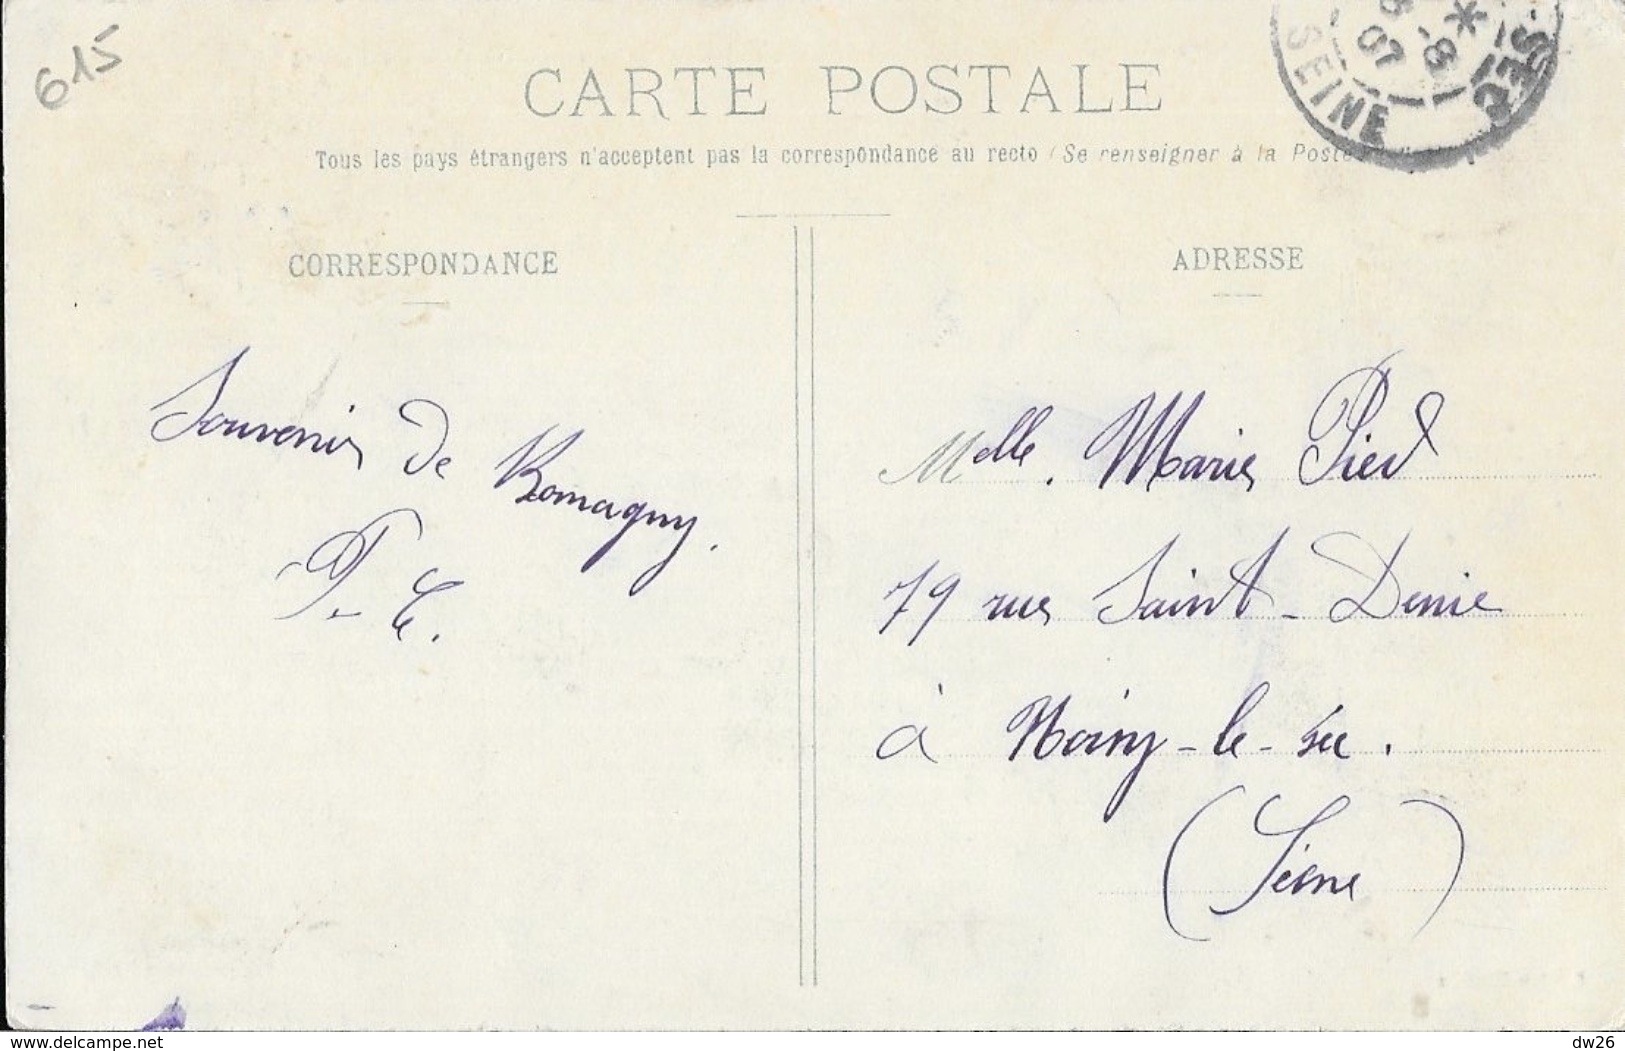 615
CARTE POSTALE
Tous les pays étrangers n'acceptent pas la correspondance au recto (Se renseigner à la Poste
SEINE
07
-8
SEC
CORRESPONDANCE
Souvenir de Romagny.
P. C.
ADRESSE
Melle. Marie Pied
79 rue Saint-Denie
à Noisy-le-sec.
(Seine)
www.delcampe.net
dw26